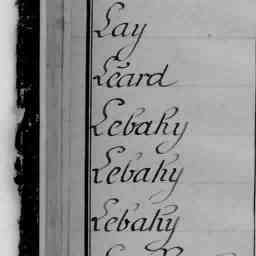 Lay
Leard
Lebahy
Lebahy
Lebahy